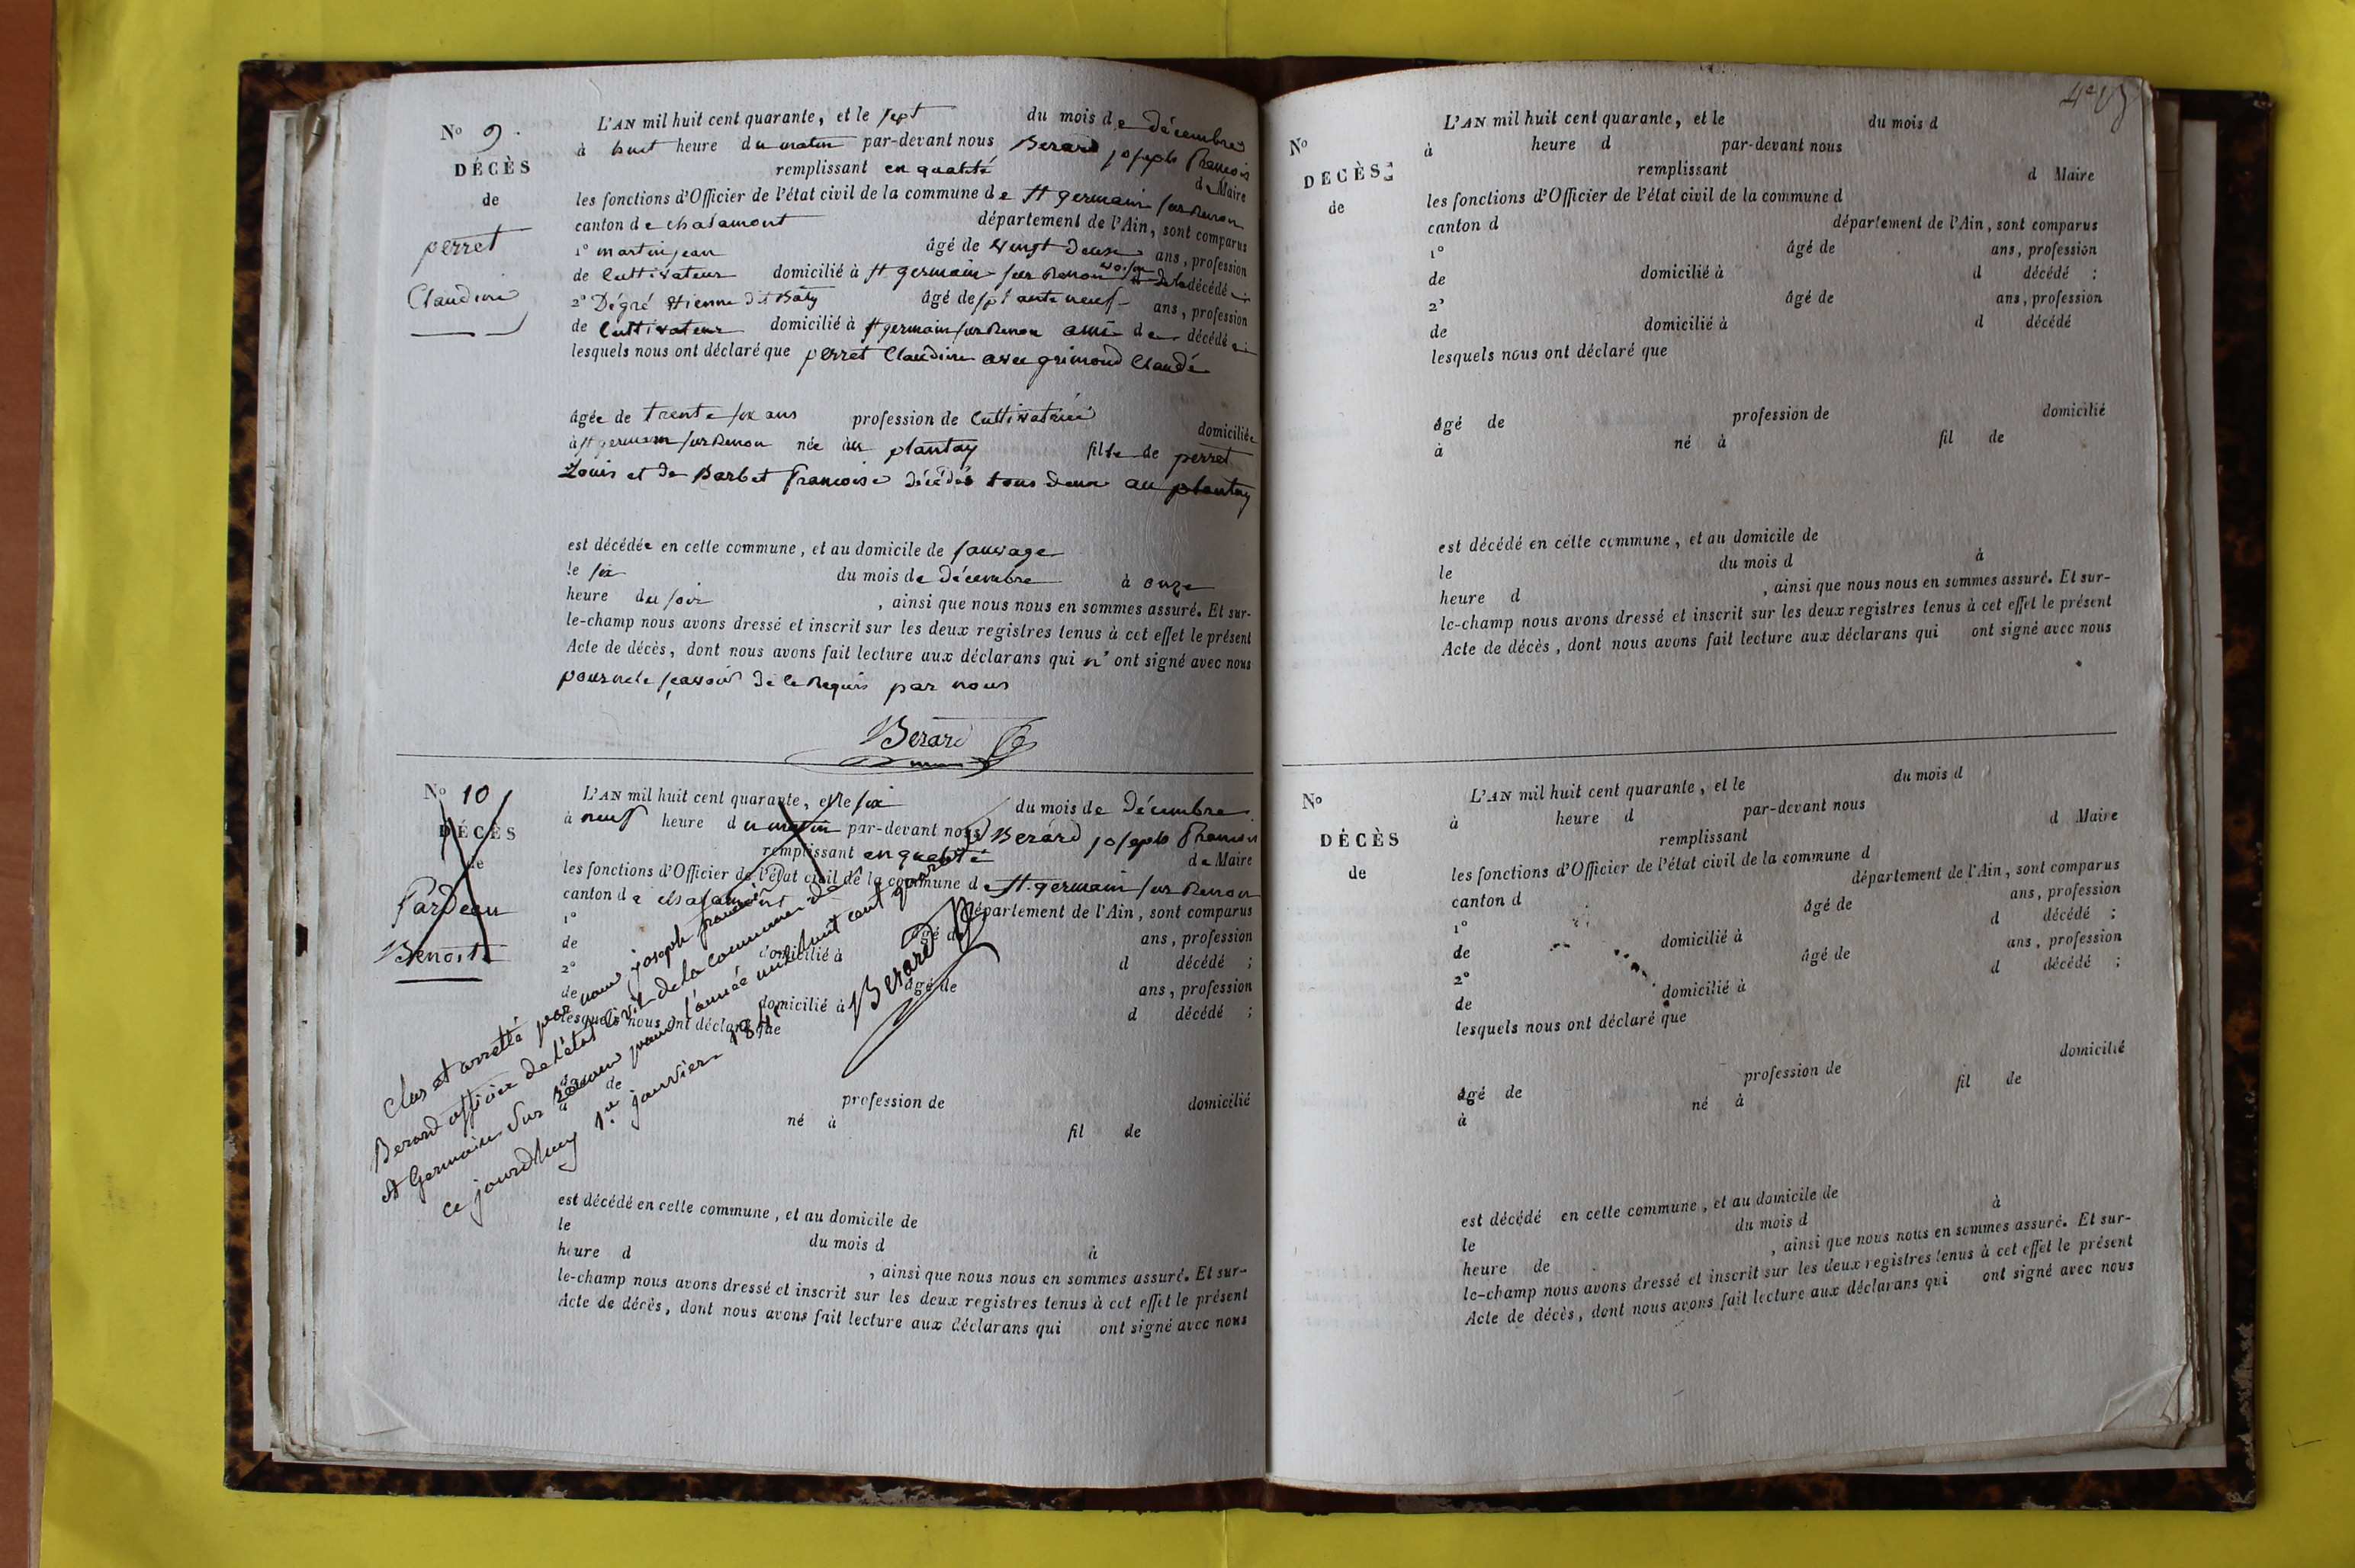 N° 9.
DÉCÈS
de
perret
Claudine
L'AN mil huit cent quarante, et le sept du mois de décembre
à huit heure du matin par-devant nous Berard joseph francois
remplissant en qualité de Maire
les fonctions d'Officier de l'état civil de la commune de St germain sur Renon
canton de chalamont département de l'Ain, sont comparus
1° martin jean âgé de vingt deux ans, profession
de Cultivateur domicilié à St germain sur Renon voisin de la décédé
2° Dégré Etienne dit Baty âgé de sptante neuf ans, profession
de Cultivateur domicilié à St germain sur Renon ami de décédé
lesquels nous ont déclaré que perret Claudine avec grimond Claude
âgée de trente six ans profession de Cultivatrice domiciliée
à St germain sur Renon née au plantay fille de perret
Louis et de Barbet francoise décédés tous deux au plantay
est décédée en celle commune, et au domicile de sauvage
le six du mois de décembre à onze
heure du soir , ainsi que nous nous en sommes assuré. Et sur-
le-champ nous avons dressé et inscrit sur les deux registres tenus à cet effet le présent
Acte de décès, dont nous avons fait lecture aux déclarans qui n' ont signé avec nous
pour ne le scavoir de ce Requis par nous
Berard
N° 10
DÉCÈS
de
Pardeau
Benoite
L'AN mil huit cent quarante, et le six du mois de décembre
à neuf heure du matin par-devant nous Berard joseph francois
remplissant en qualité de Maire
les fonctions d'Officier de l'état civil de la commune de St. germain sur Renon
canton de chalamont département de l'Ain, sont comparus
1° âgé de ans, profession
de domicilié à d décédé ;
2° âgé de ans, profession
de domicilié à d décédé ;
lesquels nous ont déclaré que
Clos et arretté par nous joseph francois
Berard officier de l'état civil de la commune de
St Germain sur Renon pour l'année mil huit cent quarante
ce jourdhuy 1er janvier 1841
Berard
de
à
profession de domicilié
né à fil de
est décédé en celle commune, et au domicile de
le du mois d à
heure d , ainsi que nous nous en sommes assuré. Et sur-
le-champ nous avons dressé et inscrit sur les deux registres tenus à cet effet le présent
Acte de décès, dont nous avons fait lecture aux déclarans qui ont signé avec nous
N°
DÉCÈS
de
L'AN mil huit cent quarante, et le du mois d
à heure d par-devant nous
remplissant d Maire
les fonctions d'Officier de l'état civil de la commune d
canton d département de l'Ain, sont comparus
1° âgé de ans, profession
de domicilié à d décédé ;
2° âgé de ans, profession
de domicilié à d décédé
lesquels nous ont déclaré que
âgé de profession de domicilié
à né à fil de
est décédé en celle commune, et au domicile de
le du mois d à
heure d , ainsi que nous nous en sommes assuré. Et sur-
le-champ nous avons dressé et inscrit sur les deux registres tenus à cet effet le présent
Acte de décès, dont nous avons fait lecture aux déclarans qui ont signé avec nous
N°
DÉCÈS
de
L'AN mil huit cent quarante, et le du mois d
à heure d par-devant nous
remplissant d Maire
les fonctions d'Officier de l'état civil de la commune d
canton d département de l'Ain, sont comparus
1° âgé de ans, profession
de domicilié à d décédé ;
2° âgé de ans, profession
de domicilié à d décédé ;
lesquels nous ont déclaré que
âgé de profession de domicilié
à né à fil de
est décédé en celle commune, et au domicile de
le du mois d à
heure de , ainsi que nous nous en sommes assuré. Et sur-
le-champ nous avons dressé et inscrit sur les deux registres tenus à cet effet le présent
Acte de décès, dont nous avons fait lecture aux déclarans qui ont signé avec nous